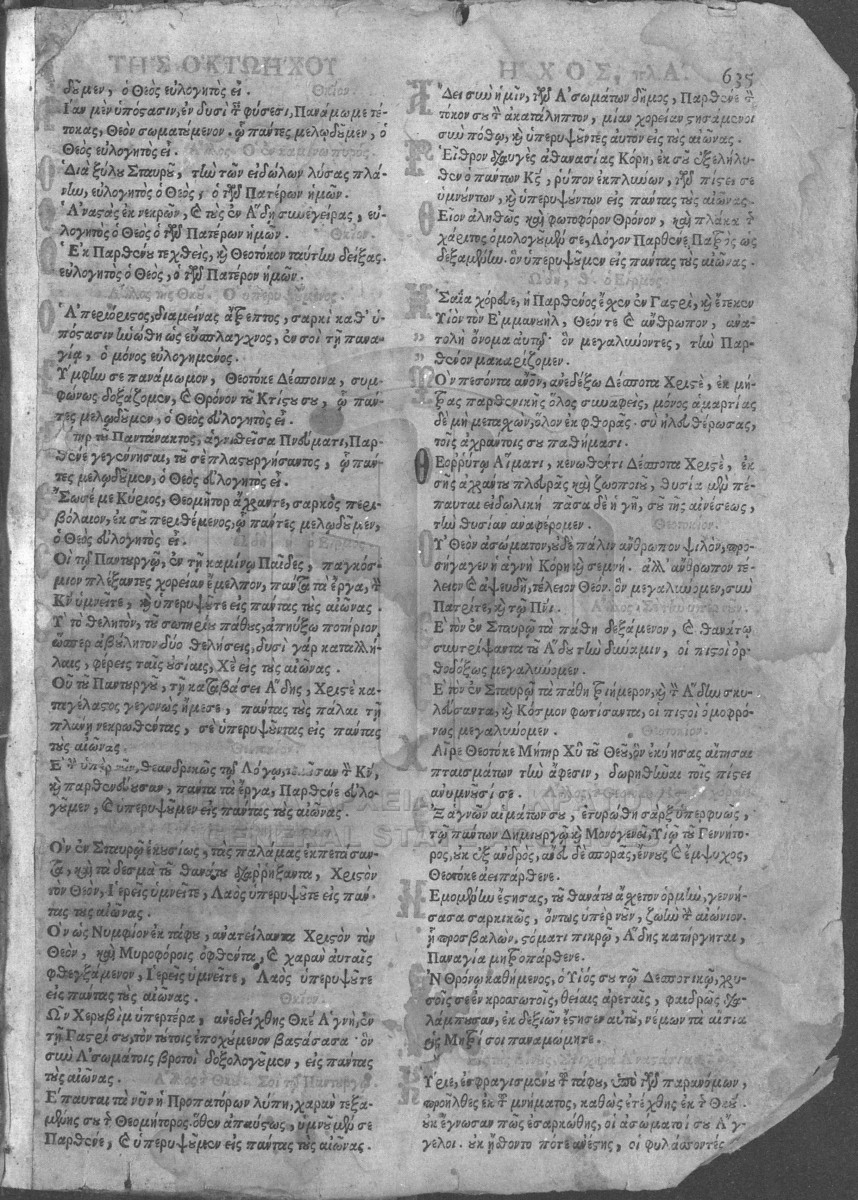 ΤΗΣ ΟΚΤΩΗΧΟΥ
δῦμεν, ὁ Θεὸς εὐλογητὸς εἶ. Θκίον.
Ίαν μὲν ὑπόστασιν, ἐν δυσὶ τ φύσεσι, Πανάμωμε τέ-
τοκας, Θεὸν σωματούμενον. ᾧ πάντες μελῳδοῦμεν, ὁ
Θεὸς εὐλογητὸς εἶ. Ἄλλος. Ὁ ἐν καμίνῳ πυρός.
Διὰ ξύλου Σταυροῦ, τὴν τῶν εἰδώλων λύσας πλά-
νην, εὐλογητὸς ὁ Θεὸς, ὁ τῶν Πατέρων ἡμῶν.
Ἀναστὰς ἐκ νεκρῶν, καὶ τοὺς ἐν Ἅδῃ συνεγείρας, εὐ-
λογητὸς ὁ Θεὸς ὁ τῶν Πατέρων ἡμῶν. Θκίον.
Ἐκ Παρθένου τεχθεὶς, καὶ Θεοτόκον ταύτην δείξας.
εὐλογητὸς ὁ Θεὸς, ὁ τῶν Πατέρον ἡμῶν.
Ἄλλος τῆς Θκου. Ὁ ὑπερυψούμενος.
Ἀπερίοριστος, διαμείνας ἄτρεπτος, σαρκὶ καθ' ὑ-
πόστασιν ἡνώθη ὡς εὔσπλαγχνος, ἐν σοὶ τῇ πανα-
γίᾳ, ὁ μόνος εὐλογημένος.
Υμφην σε πανάμωμον, Θεοτόκε Δέσποινα, συμ-
φώνως δοξάζομεν, καὶ Θρόνον τοῦ Κτίστου σου, ᾧ πάν-
τες μελῳδοῦμεν, ὁ Θεὸς εὐλογητὸς εἶ.
ήτηρ τοῦ Παντάνακτος, ἁγνισθεῖσα Πνεύματι, Παρ-
θένε γεγέννησαι, τοῦ σὲ πλαστουργήσαντος, ᾧ πάν-
τες μελῳδοῦμεν, ὁ Θεὸς εὐλογητὸς εἶ.
Ἔσωσέ με Κύριος, Θεομῆτορ ἄχραντε, σαρκὸς περι-
βόλαιον, ἐκ σοῦ περιθέμενος, ᾧ πάντες μελῳδοῦμεν,
ὁ Θεὸς εὐλογητὸς εἶ. ᾨδὴ η. ὁ Εἱρμός.
Οἱ τῷ Παντουργῷ, ἐν τῇ καμίνῳ Παῖδες, παγκόσ-
μιον πλέξαντες χορείαν ἔμελπον, πάντα τὰ ἔργα, τ
Κν ὑμνεῖτε, καὶ ὑπερυψοῦτε εἰς πάντας τοὺς αἰῶνας.
Υ τὸ θελητὸν, τοῦ σωτηρίου πάθους, ἀπηύξω ποτήριον
ὥσπερ ἀβούλητον δύο θελήσεις, δυσὶ γὰρ καταλλή-
λαις, φέρεις ταῖς οὐσίαις, Χὲ εἰς τοὺς αἰῶνας.
Οὗ τοῦ Παντουργοῦ, τῇ καταβάσει ᾍδης, Χριστὲ κα-
ταγέλαστος γεγονὼς ἤμεσε, πάντας τοὺς πάλαι τῇ
πλάνῃ νεκρωθέντας, σὲ ὑπερυψοῦντας εἰς πάντας
τοὺς αἰῶνας. Θεοτοκίον.
Ε τ ὑπὲρ νοῦν, θεανδρικῶς τῷ Λόγῳ, τεκοῦσαν τ Κν,
καὶ παρθενεύουσαν, πάντα τὰ ἔργα, Παρθένε εὐλο-
γοῦμεν, καὶ ὑπερυψοῦμεν εἰς πάντας τοὺς αἰῶνας.
Ὁν ἐν Σταυρῷ ἑκουσίως, τὰς παλάμας ἐκπετάσαν-
τα, καὶ τὰ δεσμὰ τοῦ θανάτου διαρρήξαντα, Χριστὸν
τὸν Θεὸν, Ἱερεῖς ὑμνεῖτε, Λαὸς ὑπερυψοῦτε εἰς πάν-
τας τοὺς αἰῶνας.
Ὁν ὡς Νυμφίον ἐκ τάφου, ἀνατείλαντα Χριστὸν τὸν
Θεὸν, καὶ Μυροφόροις ὀφθέντα, καὶ χαρὰν αὐταῖς
φθεγξάμενον, Ἱερεῖς ὑμνεῖτε, Λαὸς ὑπερυψοῦτε
εἰς πάντας τοὺς αἰῶνας. Θκίον.
Ὢν Χερουβὶμ ὑπερτέρα, ἀνεδείχθης Θκε Ἁγνὴ, ἐν
τῇ Γαστρί σου, τὸν τούτοις ἐποχούμενον βαστάσασα· ὃν
σὺν Ἀσωμάτοις βροτοὶ δοξολογοῦμεν, εἰς πάντας
τοὺς αἰῶνας. Ἄλλος τ Θκου. Σοὶ τῷ Παντουργῷ.
Ἐπαυται τὰ νῦν ἡ Προπατόρων λύπη, χαρὰν δεξα-
μένης σοῦ τ Θεομήτορος· ὅθεν ἀπαύστως, ὑμνοῦμέν σε
Παρθένε, καὶ ὑπερυψοῦμεν εἰς πάντας τοὺς αἰῶνας.
ΗΧΟΣ, πλ Α. 635
Ἄδει σὺν ἡμῖν, τῶν Ἀσωμάτων δῆμος, Παρθένε τ
τόκον σου τ ἀκατάληπτον, μίαν χορείαν στησάμενοι
σὺν πόθῳ, καὶ ὑπερυψοῦντες αὐτὸν εἰς τοὺς αἰῶνας.
Ρεῖθρον διαυγὲς ἀθανασίας Κόρη, ἐκ σοῦ ἐξελήλυ-
θεν ὁ πάντων Κς, ῥύπον ἐκπλύνων, τῶν πίστει σε
ὑμνούντων, καὶ ὑπερυψούντων εἰς πάντας τοὺς αἰῶνας.
Θεῖον ἀληθῶς καὶ φωτοφόρον Θρόνον, καὶ πλάκα τ
χάριτος ὁμολογοῦμέν σε, Λόγον Παρθένε Πατρὸς ὡς
δεξαμένην· ὃν ὑπερυψοῦμεν εἰς πάντας τοὺς αἰῶνας.
ᾨδὴ, θ. ὁ Εἱρμός.
Ἡσαΐα χόρευε, ἡ Παρθένος ἔχεν ἐν Γαστρὶ, καὶ ἔτεκεν
Υἱὸν τὸν Ἐμμανουὴλ, Θεόν τε καὶ ἄνθρωπον, ἀνα-
τολὴ ὄνομα αὐτῷ· ὃν μεγαλύνοντες, τὴν Παρ-
θένον μακαρίζομεν.
Τὸν πεσόντα ἄνον, ἀνεδέξω Δέσποτα Χριστὲ, ἐκ μή-
τρας παρθενικῆς ὅλος συναφεὶς, μόνος ἁμαρτίας
δὲ μὴ μετασχὼν, ὅλον ἐκ φθορᾶς· σὺ ἠλευθέρωσας,
τοῖς ἀχράντοις σου παθήμασι.
Θεορρύτῳ Αἵματι, κενωθέντι Δέσποτα Χριστὲ, ἐκ
σῆς ἀχράντου πλευρᾶς καὶ ζωοποιοῦ, θυσία μὲν πέ-
παυται εἰδωλικὴ πᾶσα δὲ ἡ γῆ, σοῦ τῆς αἰνέσεως,
τὴν θυσίαν ἀναφέρομεν. Θεοτοκίον.
Οὐ Θεὸν ἀσώματον, οὐδὲ πάλιν ἄνθρωπον ψιλὸν, προ-
σήγαγεν ἡ ἁγνὴ Κόρη καὶ σεμνή. ἀλλ' ἄνθρωπον τέ-
λειον καὶ ἀψευδῆ, τέλειον Θεόν· ὃν μεγαλύνομεν, σὺν
Πατρί τε, καὶ τῷ Πνι. Ἄλλος· Σὲ τὴν ὑπὲρ νοῦν.
Ε τὸν ἐν Σταυρῷ τὰ πάθη δεξάμενον, καὶ θανάτῳ
συντρίψαντα τοῦ ᾍδου τὴν δύναμιν, οἱ πιστοὶ ὀρ-
θοδόξως μεγαλύνομεν.
Ε τὸν ἐν Σταυρῷ τὰ πάθη τριήμερον, καὶ τ ᾍδην σκυ-
λεύσαντα, καὶ Κόσμον φωτίσαντα, οἱ πιστοὶ ὁμοφρό-
νως μεγαλύνομεν. Θεοτοκίον.
Χαῖρε Θεοτόκε Μήτηρ Χῦ τοῦ Θεοῦ, ὃν ἐκύησας αἴτησαι
πταισμάτων τὴν ἄφεσιν, δωρηθῆναι τοῖς πίστει
ἀνυμνοῦσί σε.
Ἐξ ἁγνῶν αἱμάτων σου, ἐστυρώθη σὰρξ ὑπερφυῶς,
τῷ πάντων Δημιουργῷ καὶ Μονογενεῖ, Υἱῷ τοῦ Γεννήτο-
ρος, οὐκ ἐξ ἀνδρὸς, ἄνευ δὲ σπορᾶς, ἔννους καὶ ἔμψυχος,
Θεοτόκε ἀειπάρθενε.
Νεμομένην ἔστησας, τοῦ θανάτου ἄσχετον ὁρμὴν, γεννή-
σασα σαρκικῶς, ὄντως ὑπὲρ νοῦν, ζωὴν τ αἰώνιον·
ᾗ προσβαλὼν, στόματι πικρῷ, ᾍδης κατήργηται,
Παναγία μητροπάρθενε.
Ἐν Θρόνῳ καθήμενος, ὁ Υἱός σου τῷ Δεσποτικῷ, χρυ-
σοῖς σε ἐν κροσσωτοῖς, θείαις ἀρεταῖς, φαιδρῶς δια-
λάμπουσαν, ἐκ δεξιῶν ἔστησεν αὐτοῦ, νέμων τὰ αἴσια
ὡς Μητρί σοι πανάμωμητε.
Κύριε, ἐσφραγισμένου τ τάφου, ὑπὸ τῶν παρανόμων,
προῆλθες ἐκ τ μνήματος, καθὼς ἐτέχθης ἐκ τ Θκου·
οὐκ ἔγνωσαν πῶς ἐσαρκώθης, οἱ ἀσώματοί σου Ἄγ-
γελοι· οὐκ ᾔσθοντο πότε ἀνέστης, οἱ φυλάσσοντές
GENERAL STATE